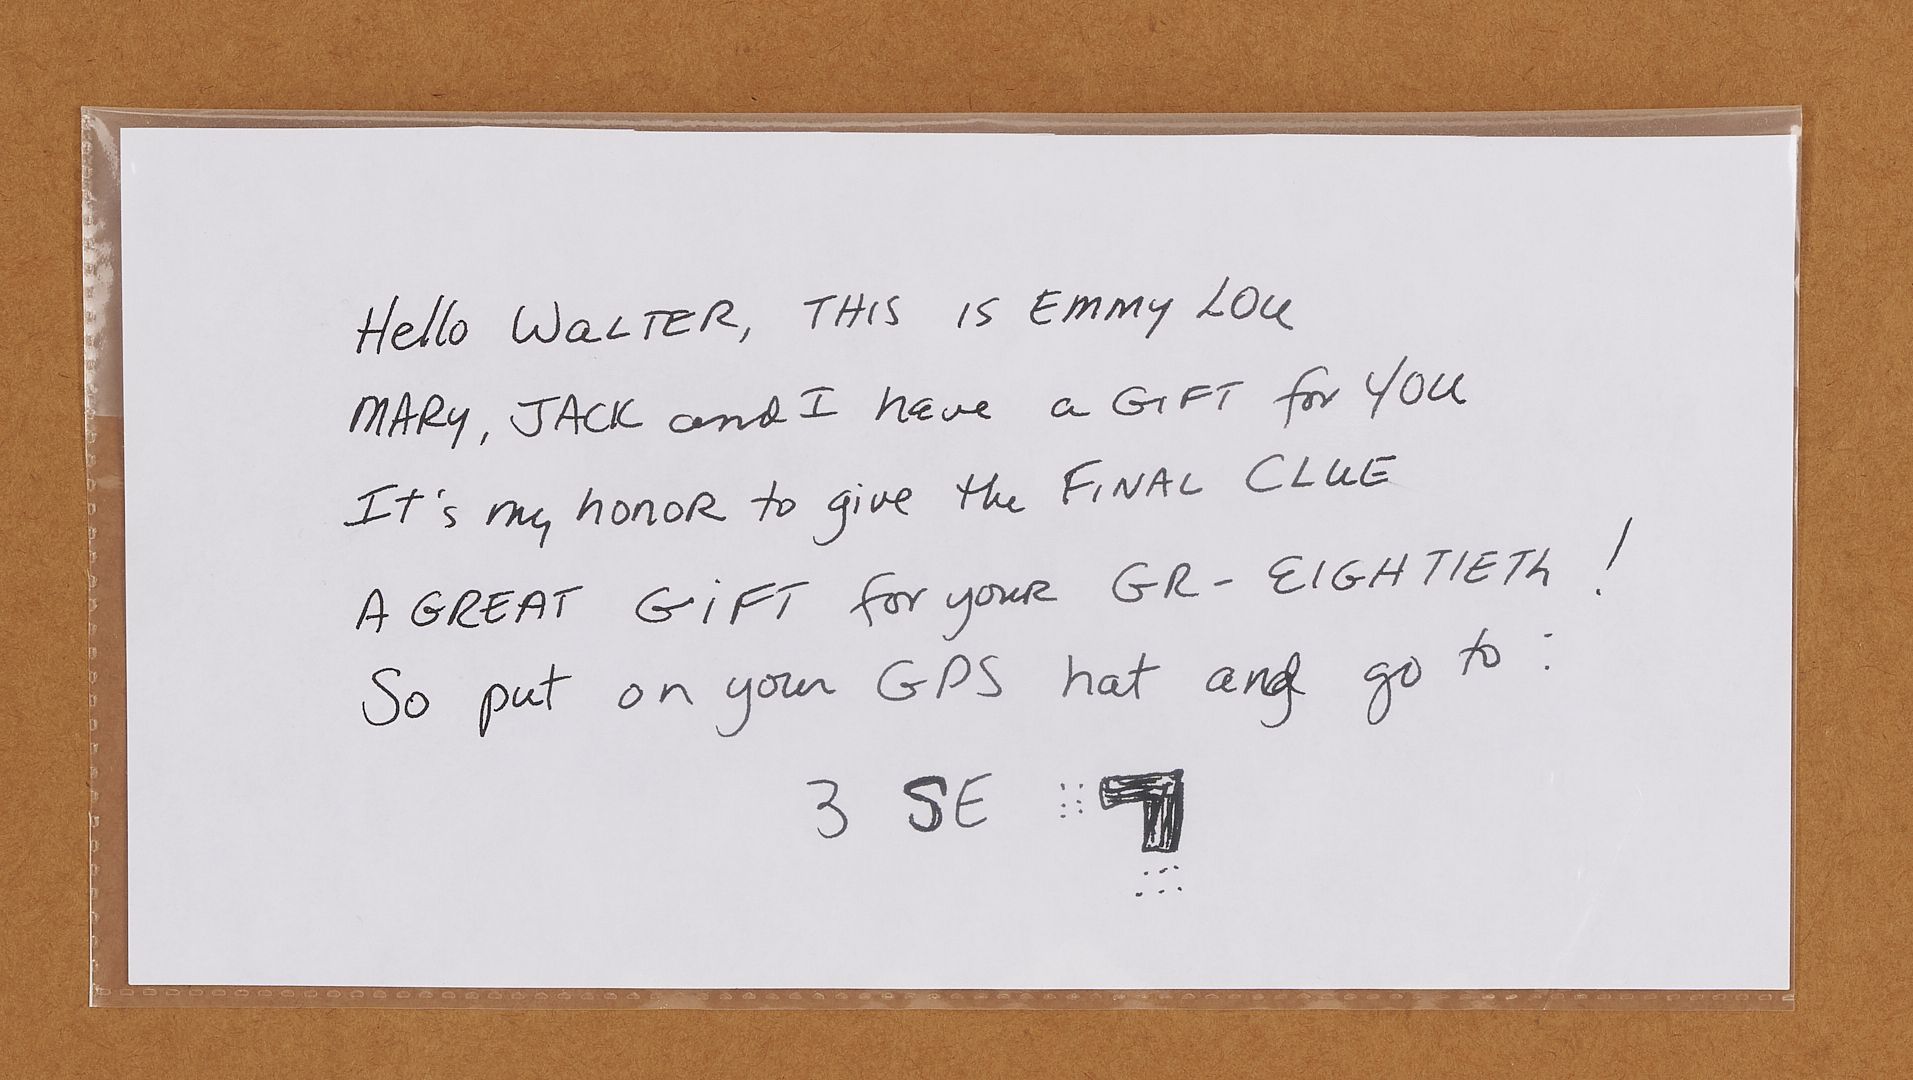 Hello WaLTER, THIS IS EMMY LOU
MARY, JACK and I have a GIFT for YOU
It's my honor to give the FINAL CLUE
A GREAT GiFT for your GR- EIGHTIETh !
So put on your GPS hat and go to :
3 SE